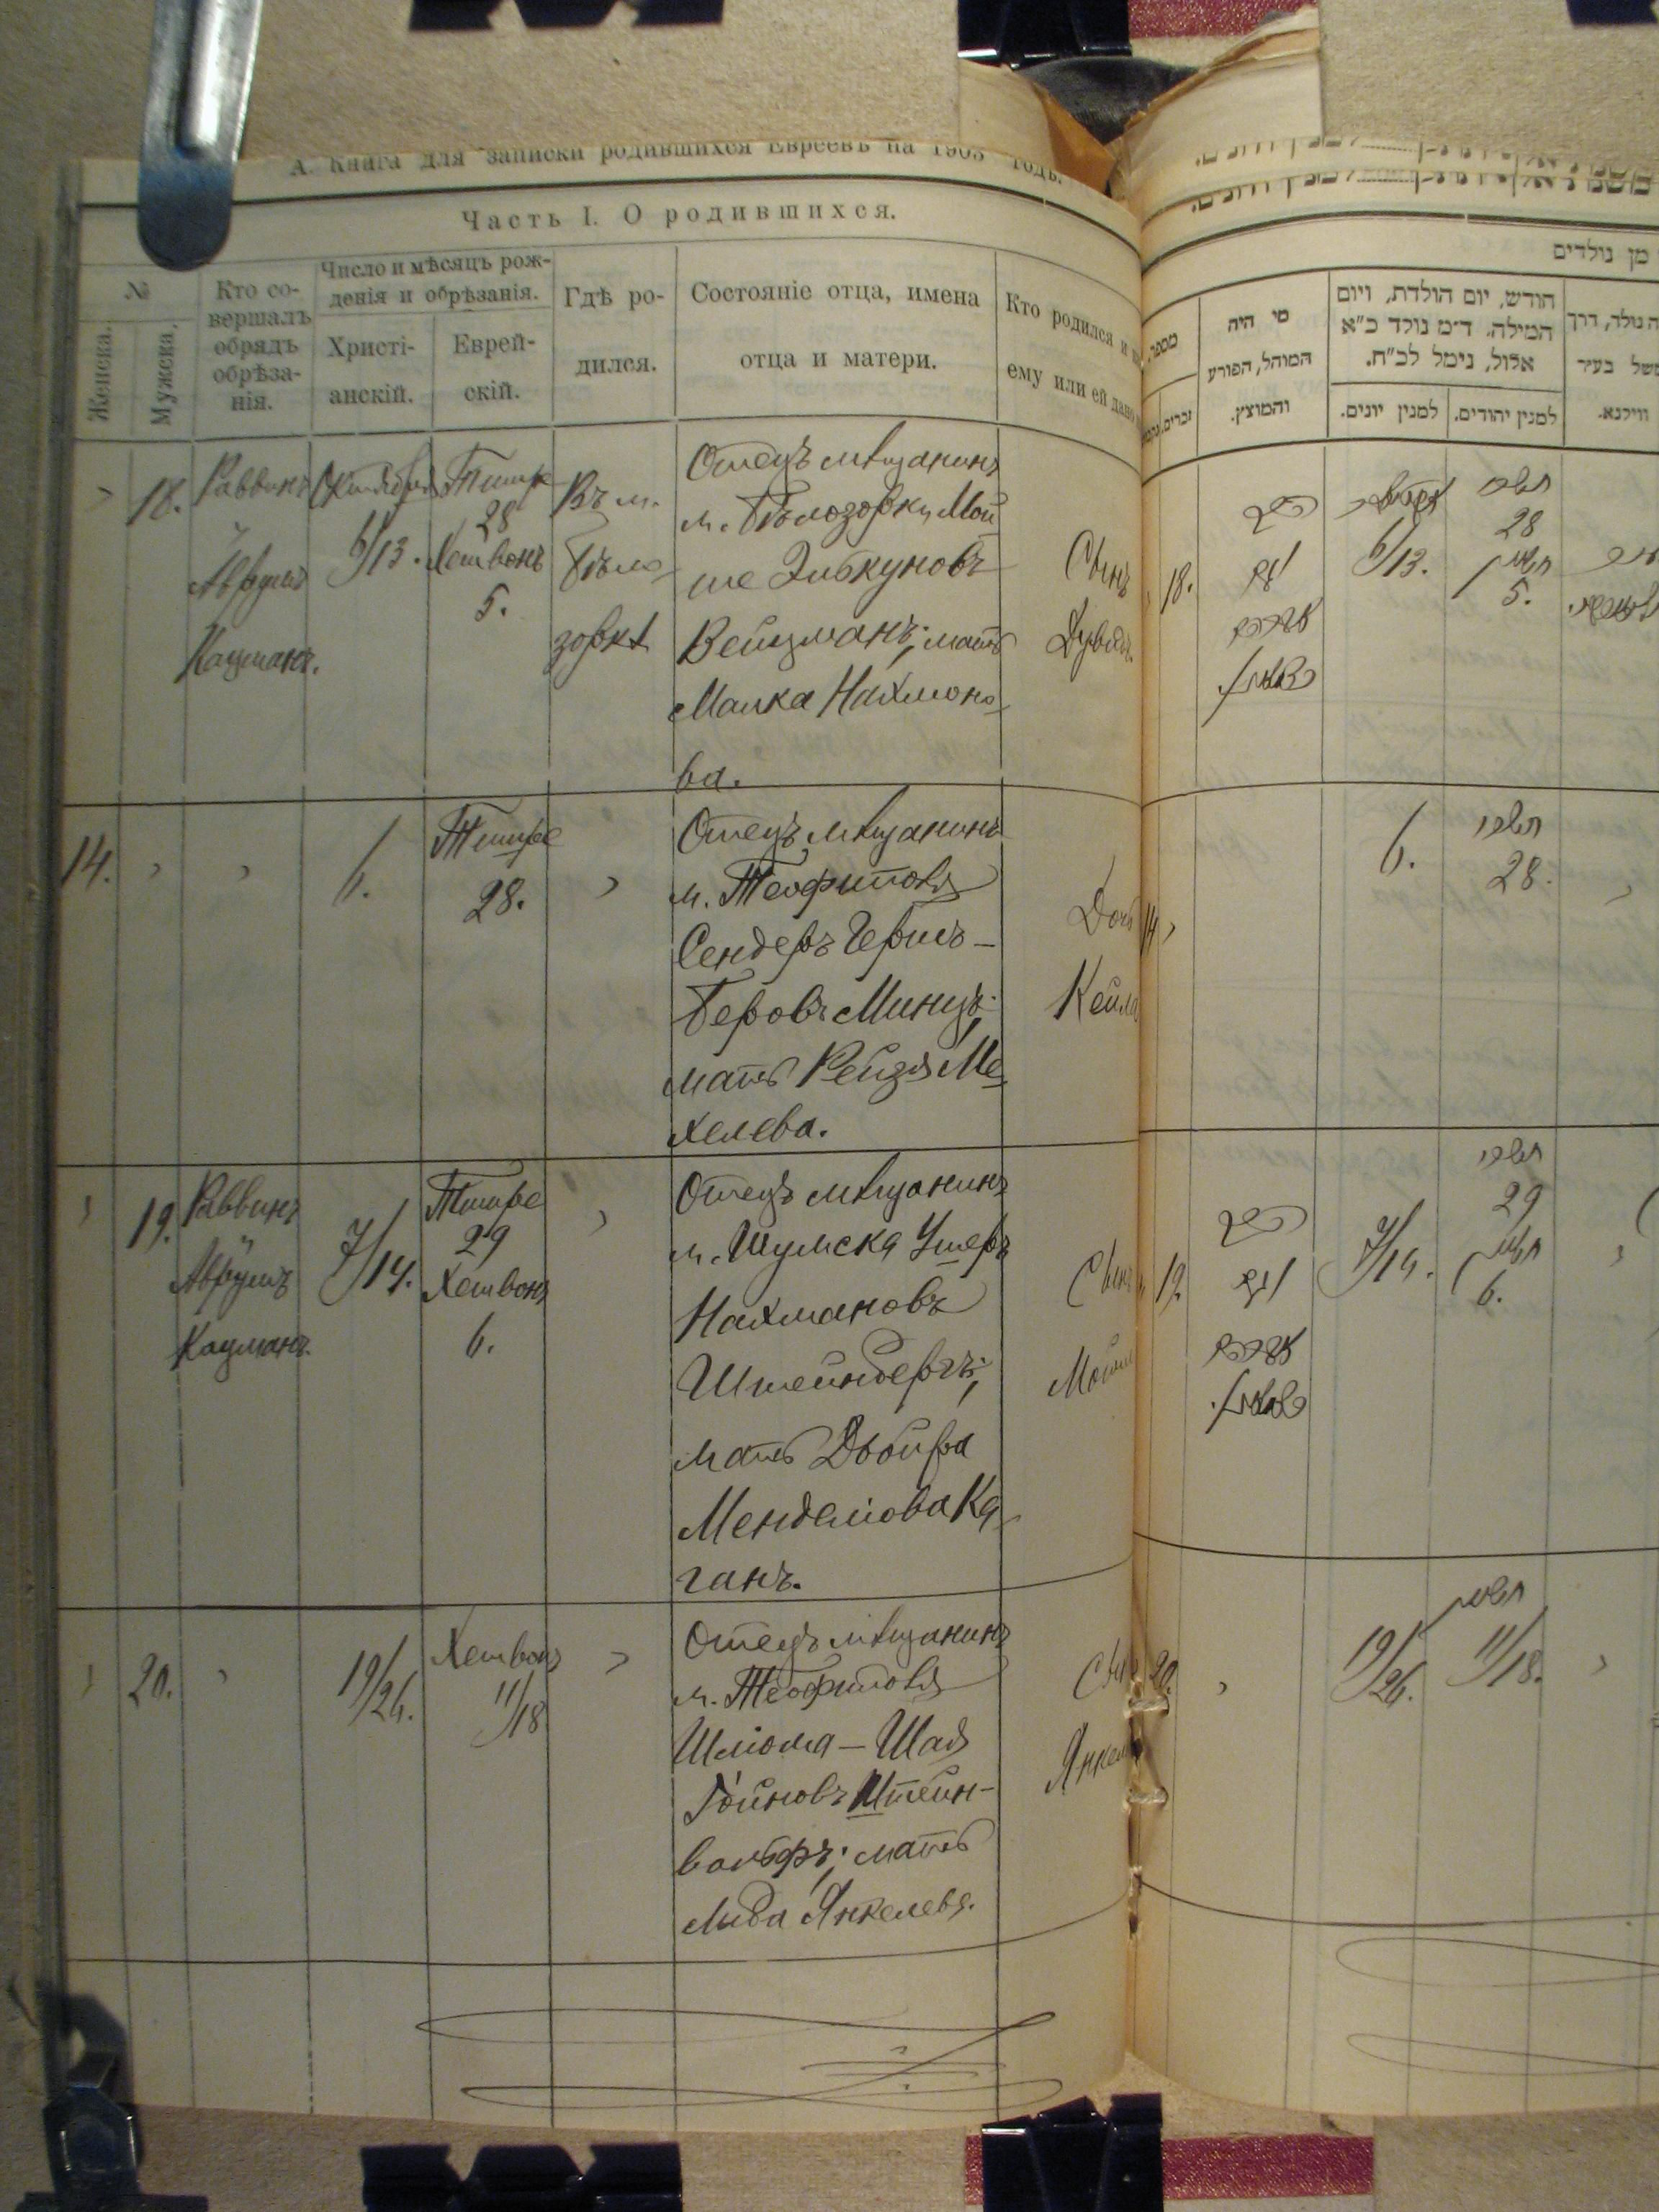 А. Книга для записки родившихся Евреевъ на 1903 годъ.
Часть I. О родившихся.
№
Женска.
Мужска.
Кто со-
вершалъ
обрядъ
обрѣза-
нія.
Число и мѣсяцъ рож-
денія и обрѣзанія.
Христі-
анскій.
Еврей-
скій.
Гдѣ ро-
дился.
Состояніе отца, имена
отца и матери.
Кто родился и
ему или ей дано
18.
Раввинъ
Аврумъ
Кацманъ.
Октября
6/13.
Тишре
28
Хешвонъ
5.
Въ м.
Бѣло-
зоркѣ
Отецъ мѣщанинъ
м. Бѣлозорки Мой
ше
Вейцманъ; мать
Малка Нахмоно-
ва.
Сынъ
Дувидъ.
14.
6.
Тишре
28.
Отецъ мѣщанинъ
м. Теофиполя
Сендеръ Гершъ-
Беровъ Минцъ;
мать Рейзя Ме-
хелева.
Дочь
Кейла
19.
Раввинъ
Аврумъ
Кацманъ.
7/14.
Тишре
29
Хешвонъ
6.
Отецъ мѣщанинъ
м. Шумска Ушеръ
Нахмановъ
Штейнбергъ;
мать Двойра
Менделіова Ка-
ганъ.
Сынъ
20.
19/26.
Хешвонъ
11/18
Отецъ мѣщанинъ
м. Теофиполя
Шліома-Шая
Штейн-
вольфъ; мать
Янкелева.
מן נולדים
מספר,
זכרים,
מי היה
המוהל, הפורע
והמוצץ.
חודש, יום הולדת, ויום
המילה. ד״מ נולד כ״א
אלול, נימל לכ״ח.
למנין יונים.
למנין יהודים.
נולד, דרך
משל בעיר
ווילנא.
18.
6/13.
תשרי
28
חשון
5.
14
6.
תשרי
28.
19.
7/14.
תשרי
29
חשון
6.
20.
19/26.
חשון
11/18.